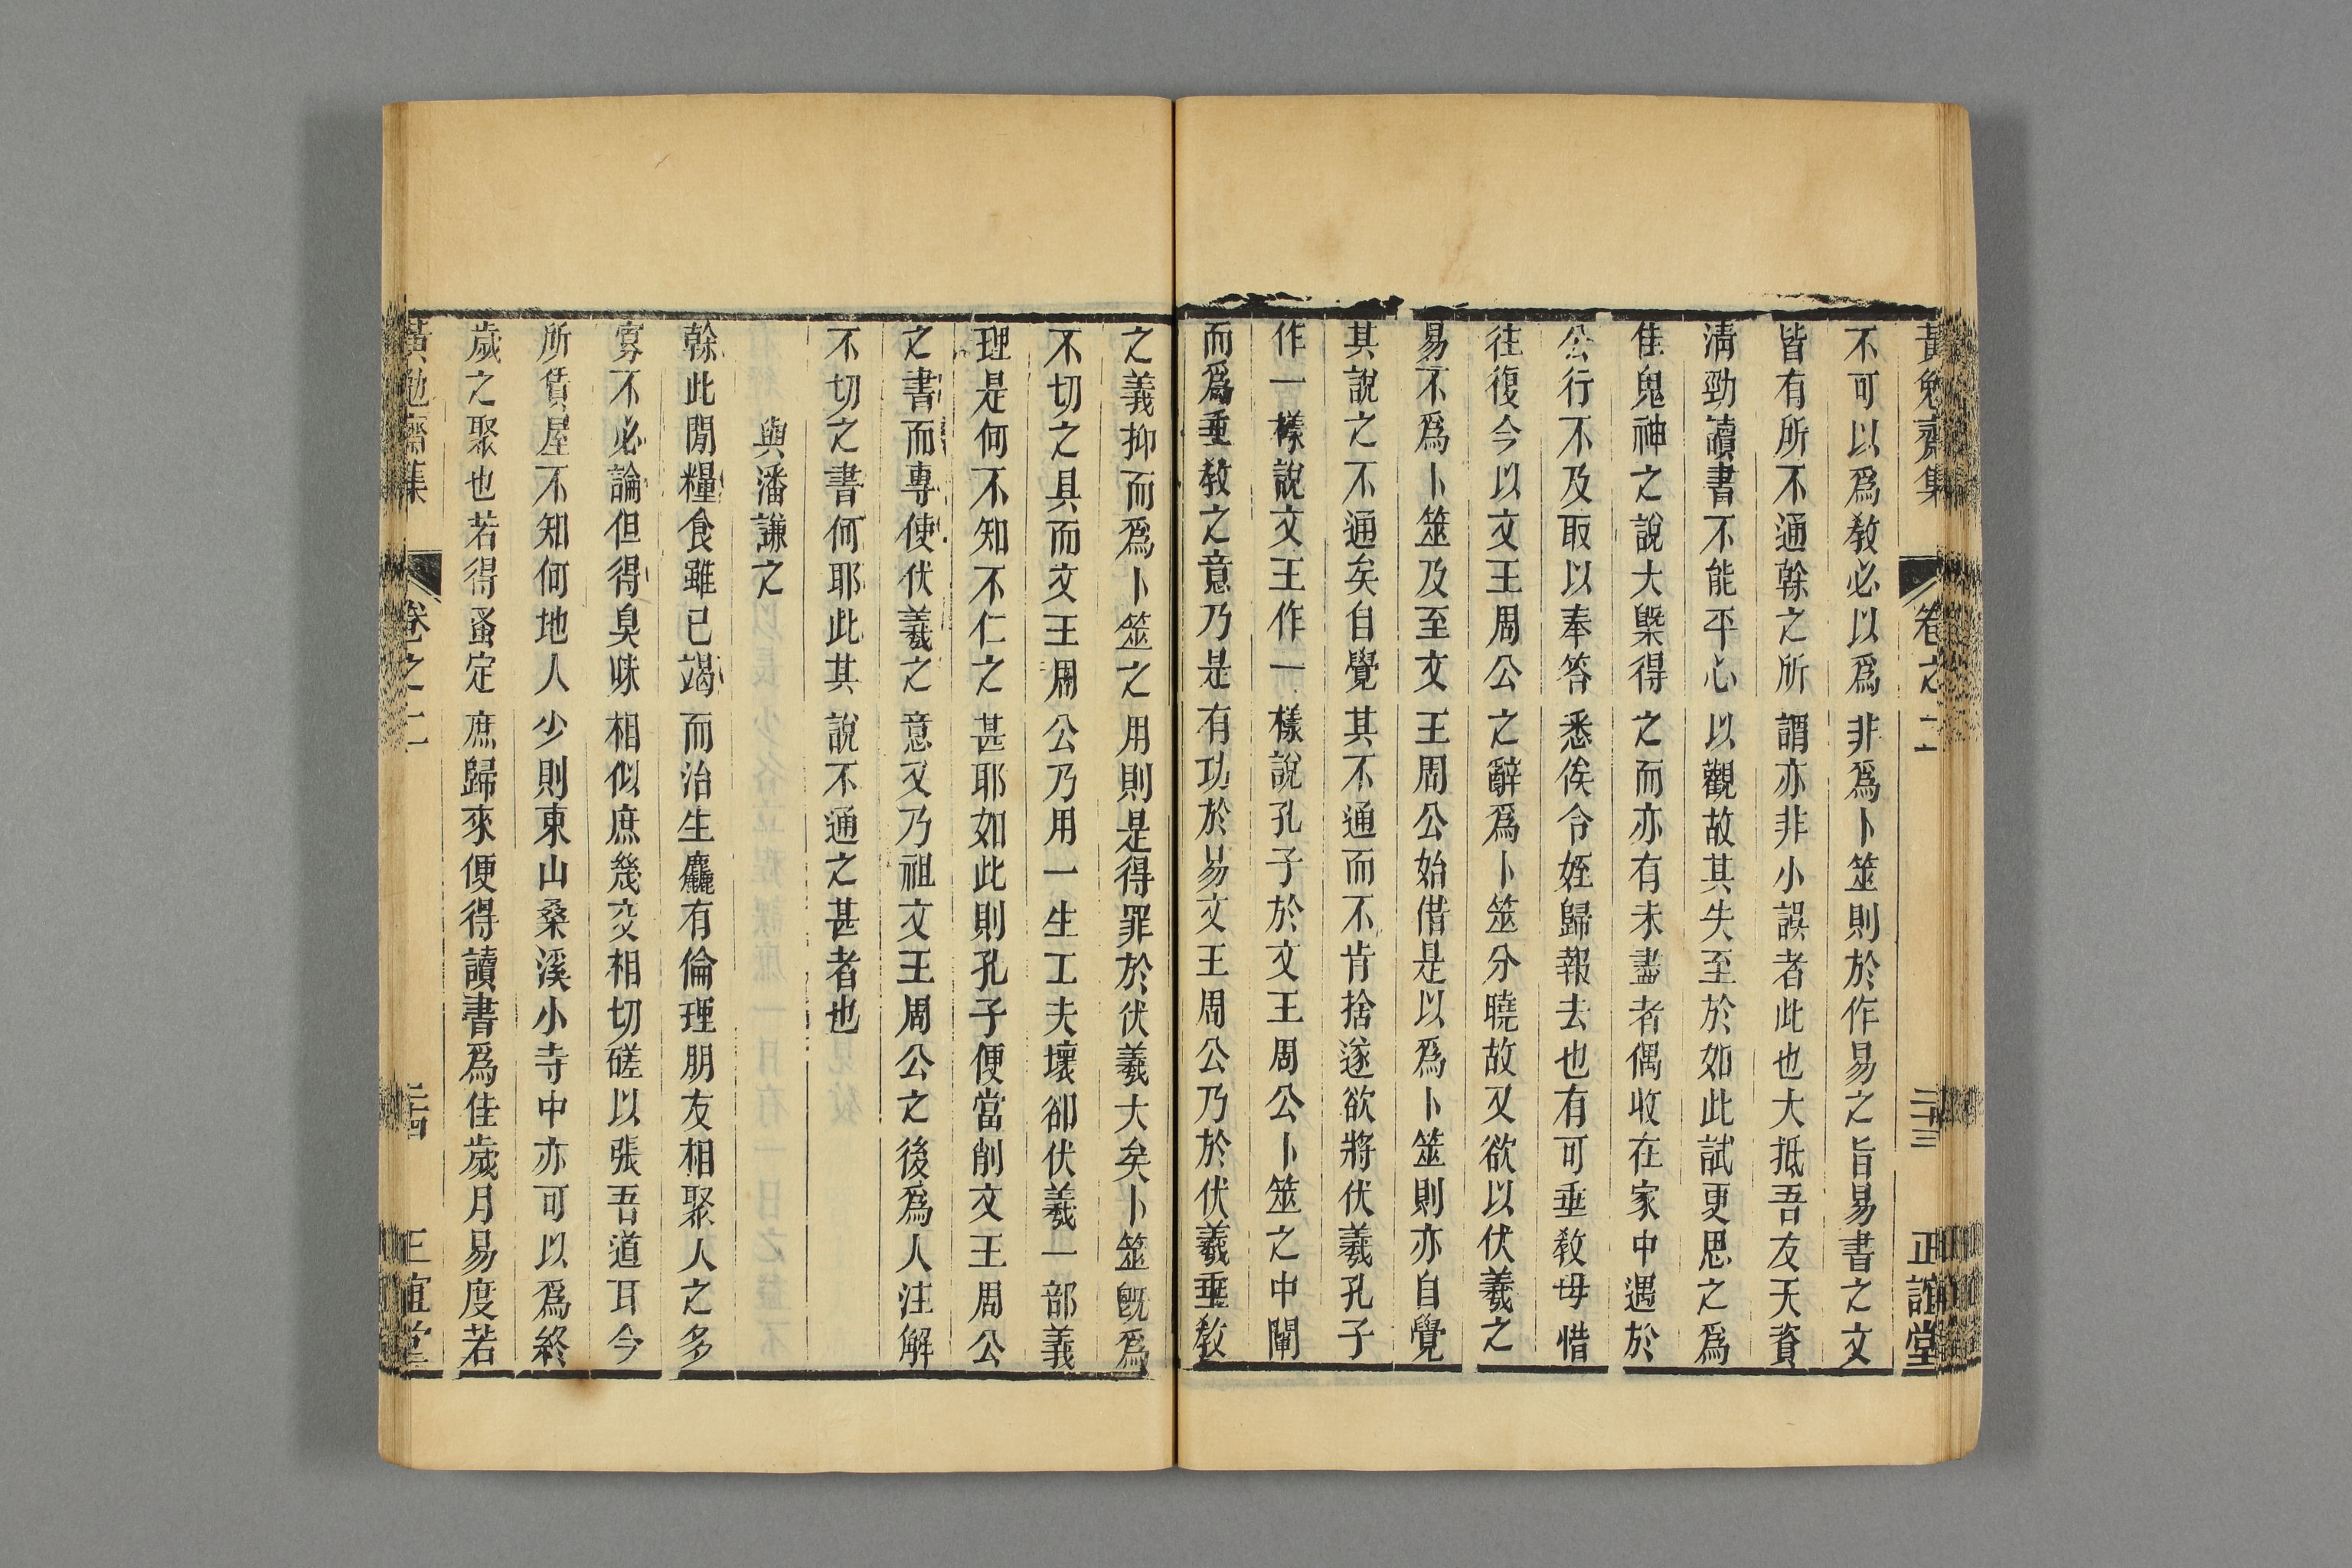 黃勉齋集 卷之二 二十三 正誼堂
不可以爲敎必以爲非爲卜筮則於作易之旨易書之文
皆有所不通榦之所謂亦非小誤者此也大抵吾友天資
淸勁讀書不能平心以觀故其失至於如此試更思之爲
佳鬼神之說大槩得之而亦有未盡者偶收在家中遇於
公行不及取以奉答悉俟令姪歸報去也有可垂敎毋惜
往復今以文王周公之辭爲卜筮分曉故又欲以伏羲之
易不爲卜筮及至文王周公始借是以爲卜筮則亦自覺
其說之不通矣自覺其不通而不肯捨遂欲將伏羲孔子
作一樣說文王作一樣說孔子於文王周公卜筮之中闡
而爲垂敎之意乃是有功於易文王周公乃於伏羲垂敎
之義抑而爲卜筮之用則是得罪於伏羲大矣卜筮旣爲
不切之具而文王周公乃用一生工夫壞卻伏羲一部義
理是何不知不仁之甚耶如此則孔子便當削文王周公
之書而專使伏羲之意又乃祖文王周公之後爲人注解
不切之書何耶此其說不通之甚者也
與潘謙之
榦此閒糧食雖已竭而治生麤有倫理朋友相聚人之多
寡不必論但得臭味相似庶幾交相切磋以張吾道耳今
所賃屋不知何地人少則東山桑溪小寺中亦可以爲終
歲之聚也若得蚤定庶歸來便得讀書爲佳歲月易度若
黃勉齋集 卷之二 二十四 正誼堂